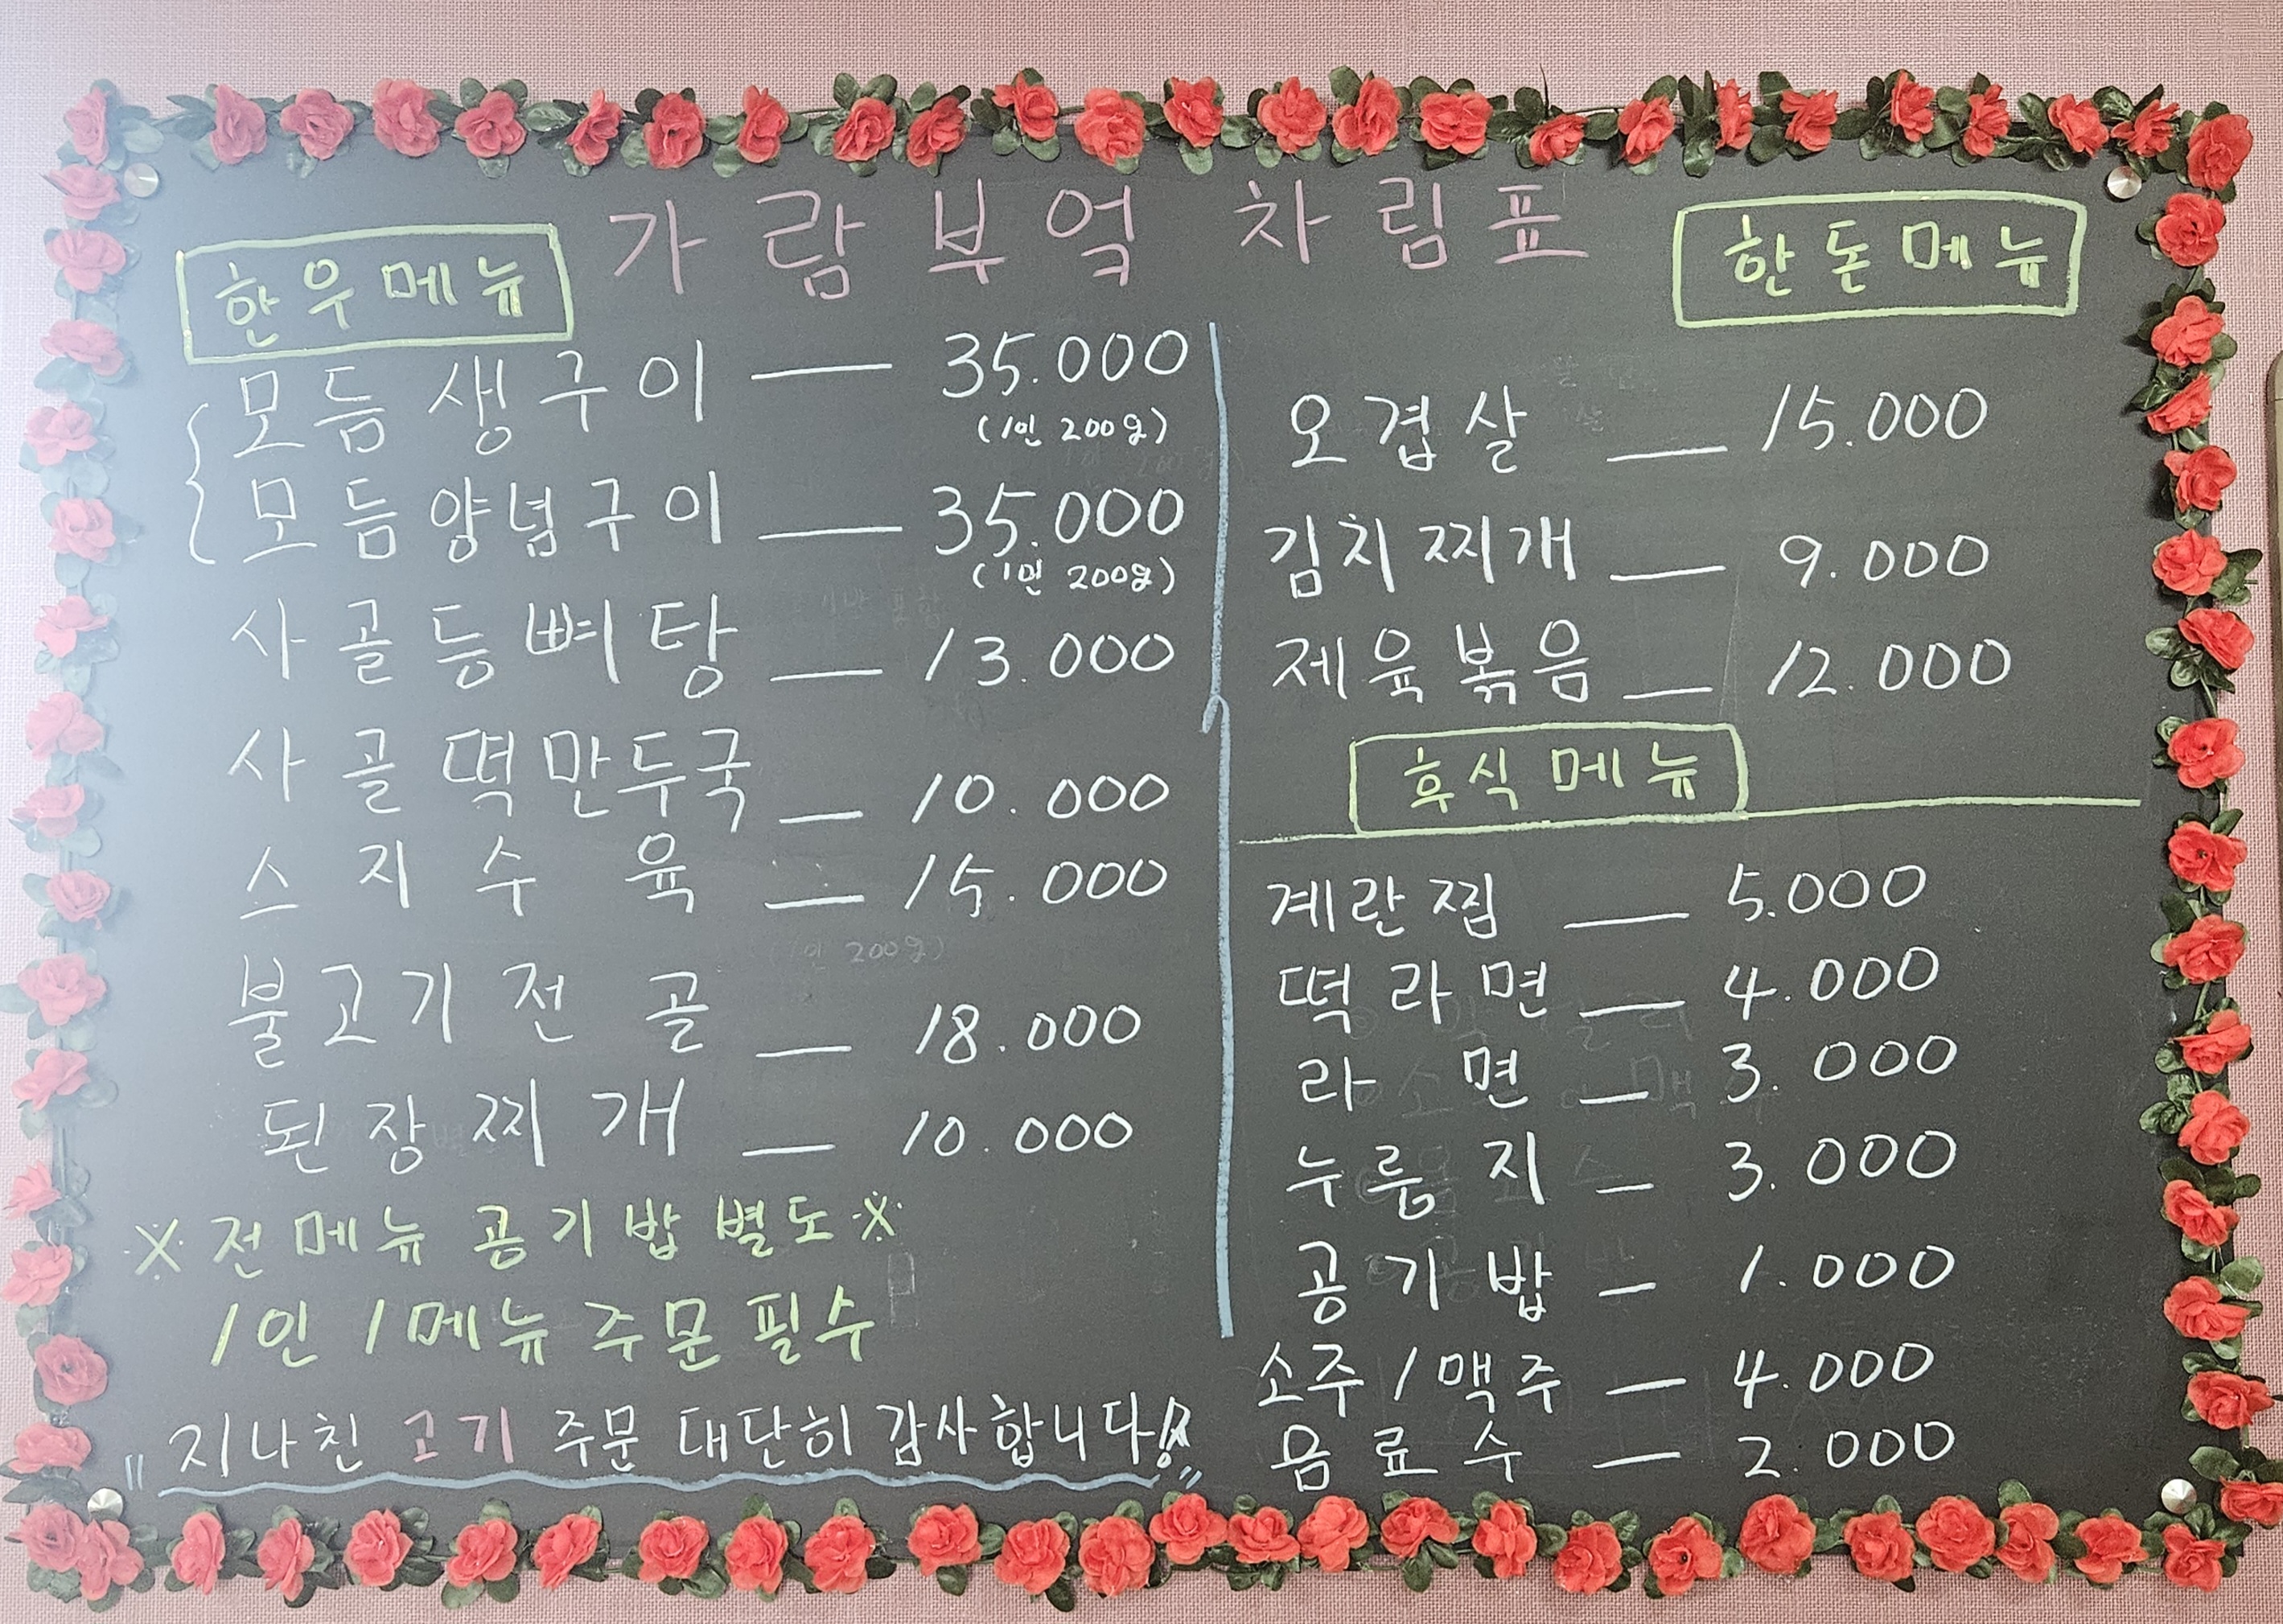 가람부엌 차림표
한우메뉴
모듬생구이 — 35.000
(1인 200g)
모듬양념구이 — 35.000
(1인 200g)
사골등뼈탕 — 13.000
사골떡만두국 — 10.000
스지수육 — 15.000
불고기전골 — 18.000
된장찌개 — 10.000
※ 전메뉴 공기밥 별도 ※
1인 1메뉴 주문 필수
"지나친 고기 주문 대단히 감사합니다!"
한돈메뉴
오겹살 — 15.000
김치찌개 — 9.000
제육볶음 — 12.000
후식메뉴
계란찜 — 5.000
떡라면 — 4.000
라면 — 3.000
누룽지 — 3.000
공기밥 — 1.000
소주/맥주 — 4.000
음료수 — 2.000